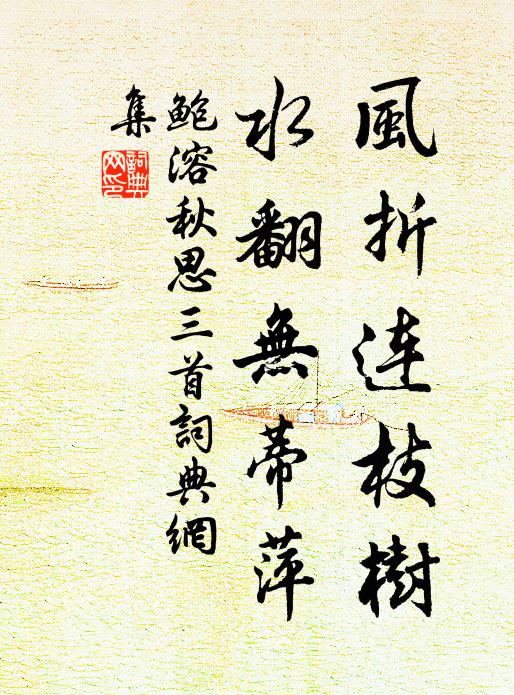 風折连枝樹
水翻無蒂萍
鲍溶秋思三首詞典網
集
詞典
网印